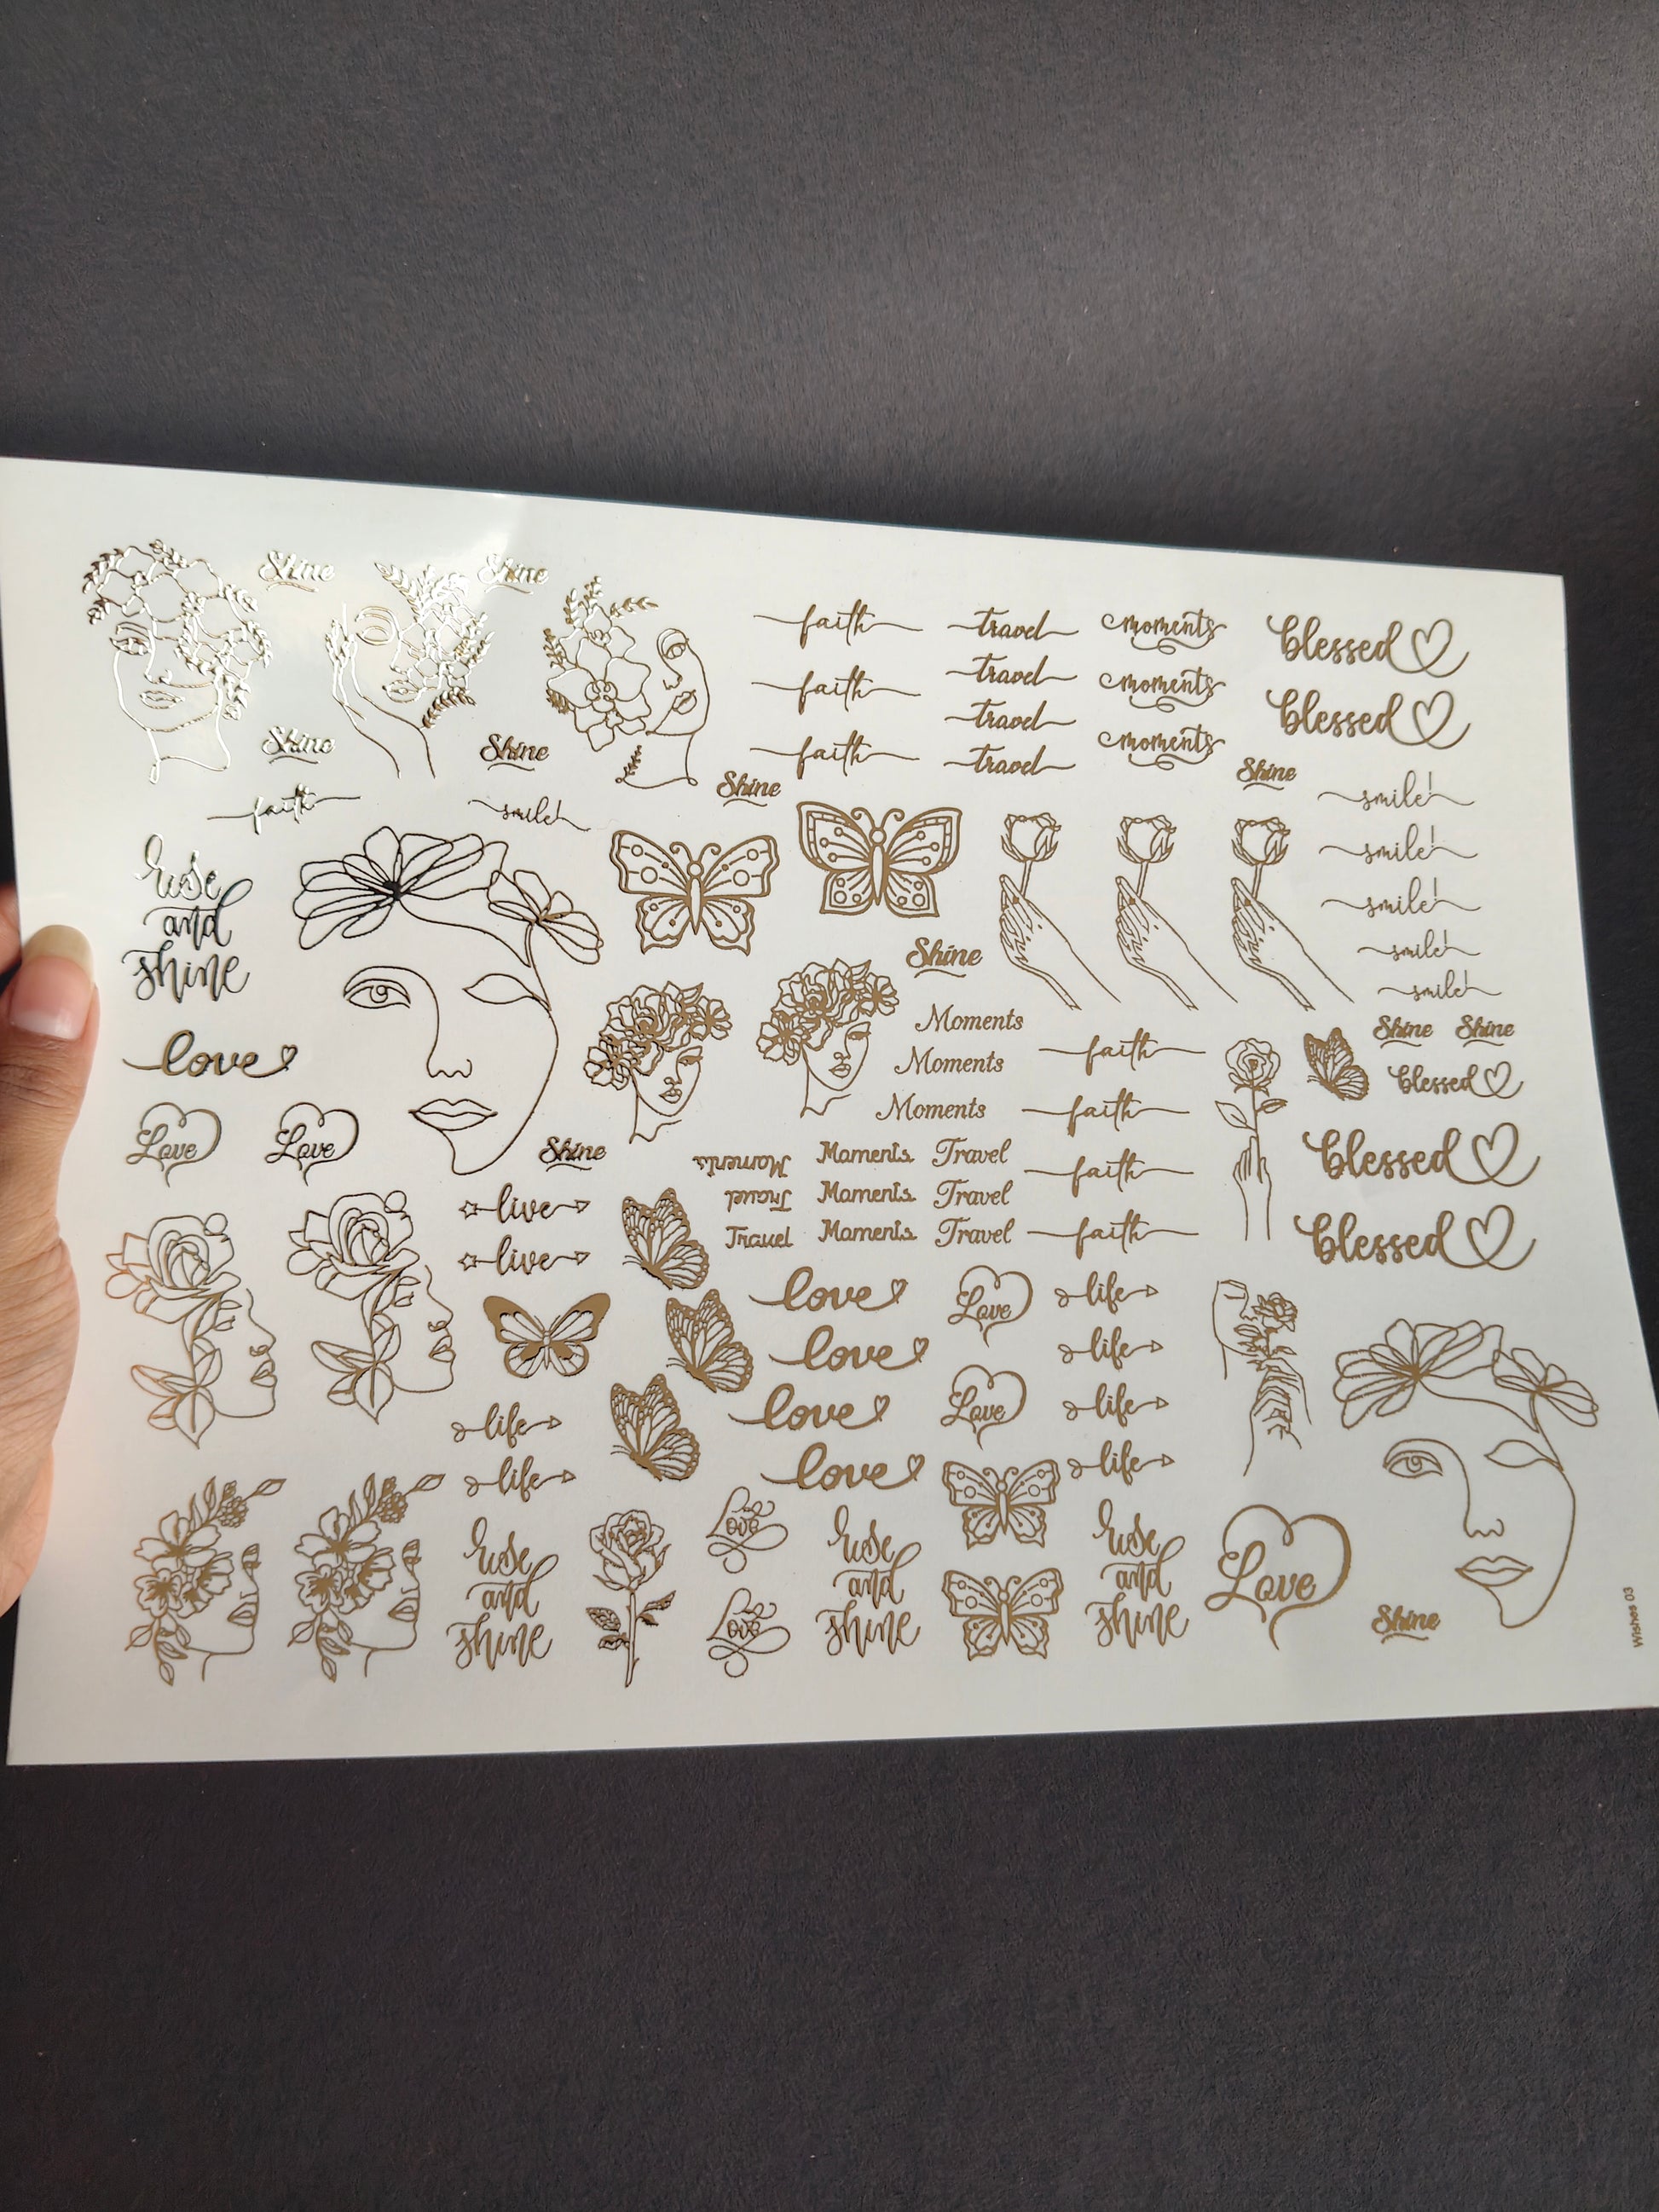 Shine Shine
faith travel moments blessed
travel
faith moments blessed
travel
Shine Shine faith travel moments
Shine Shine smile!
faith smile!
smile!
rise
and
shine
smile!
Shine smile!
smile!
Moments Shine Shine
love Moments faith blessed
Moments faith
Love Love Shine Moments Moments Travel faith blessed
live Travel Moments Travel
live Travel Moments Travel faith blessed
love Love life
love life
life love Love life
life love life
rise
and
shine
Love
Love
rise
and
shine
rise
and
shine
Love
Shine
Wishes 03